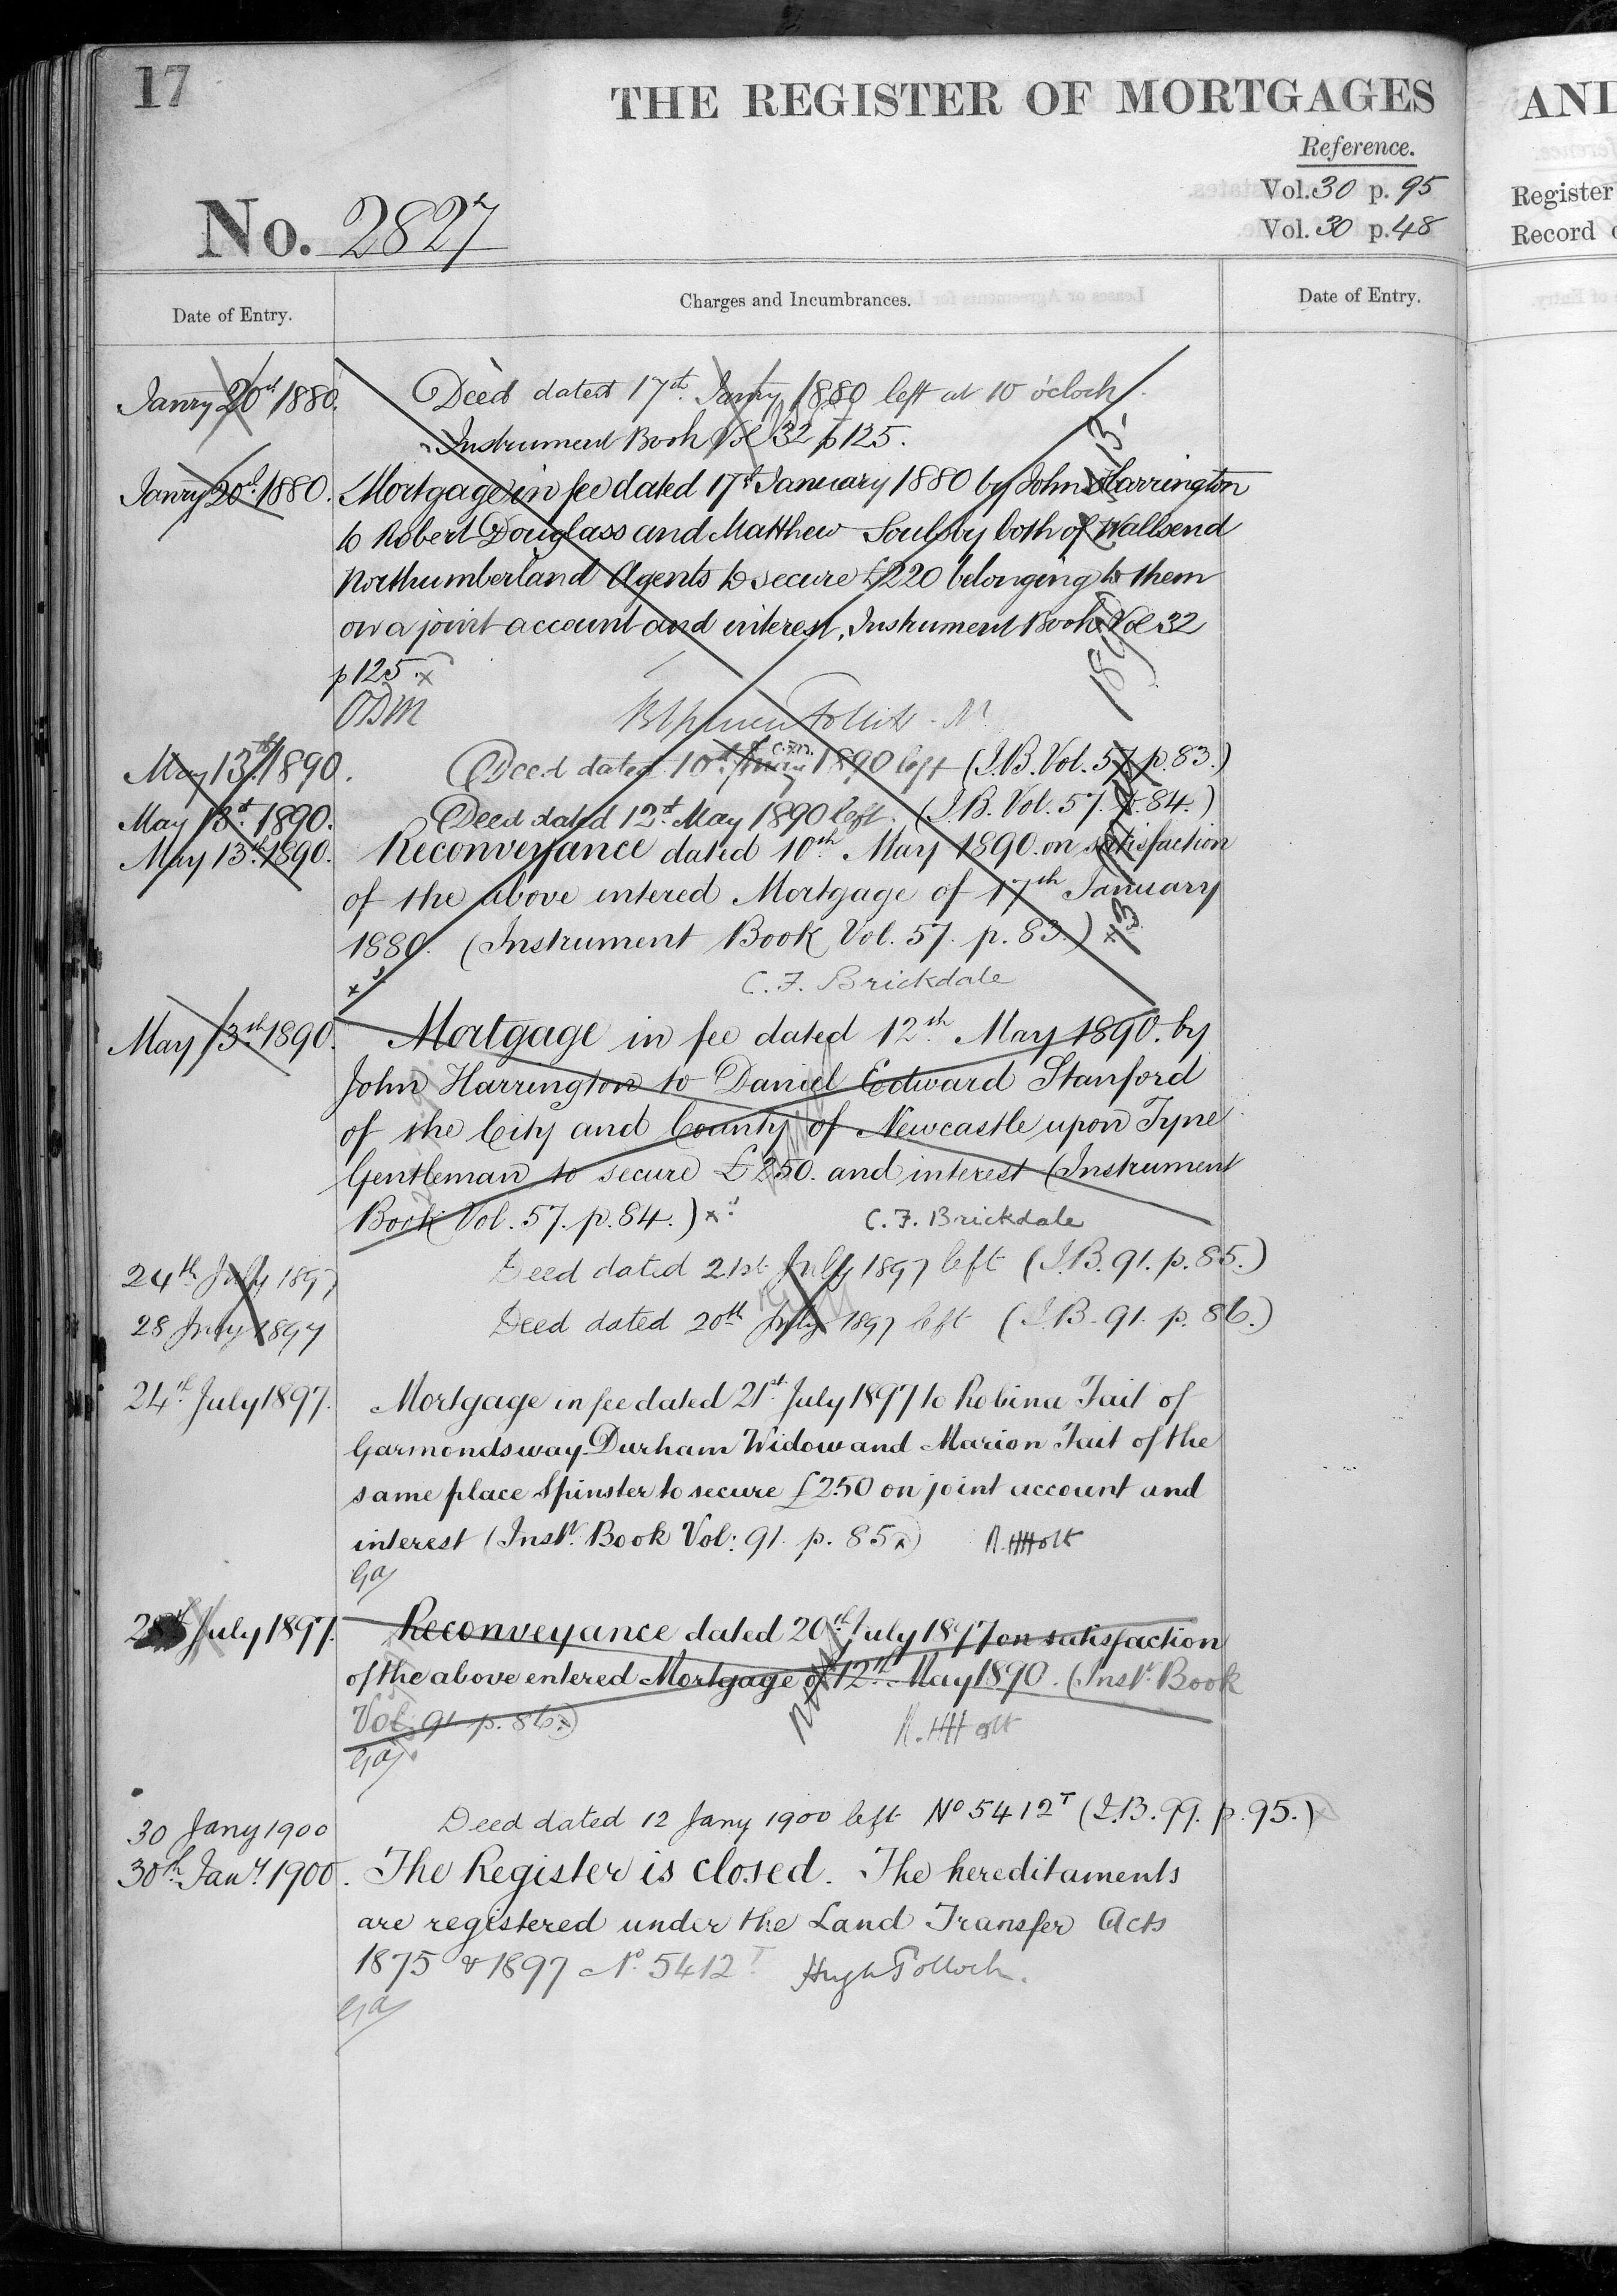 17
THE REGISTER OF MORTGAGES
Reference.
Vol. 30 p. 95
Vol. 30 p. 48
No. 2827
Date of Entry.
Charges and Incumbrances.
Date of Entry.
Janry 20th 1880. Deed dated 17th Janry 1880 left at 10 o'clock.
Instrument Book Vol 32 p 125.
Janry 20th 1880. Mortgage in fee dated 17th January 1880 by John Harrington
to Robert Douglass and Matthew Soulsby both of Wallsend
Northumberland Agents to secure £220 belonging to them
on a joint account and interest, Instrument Book Vol 32
p 125. x
ODM
May 13th 1890. Deed dated 10th 1890 left (I.B. Vol. 57. p. 83.)
May 13th 1890. Deed dated 12th May 1890 left. (I.B. Vol. 57. p. 84.)
May 13th 1890. Reconveyance dated 10th May 1890. on satisfaction
of the above entered Mortgage of 17th January
1880. (Instrument Book Vol. 57. p. 83.)
C. F. Brickdale
May 13th 1890. Mortgage in fee dated 12th May 1890. by
John Harrington to Daniel Edward Stanford
of the City and County of Newcastle upon Tyne
Gentleman to secure £250. and interest (Instrument
Book Vol. 57. p. 84.) x
C. F. Brickdale
24th July 1897 Deed dated 21st July 1897 left (I.B. 91. p. 85.)
28 July 1897 Deed dated 20th July 1897 left (I.B. 91. p. 86.)
24th July 1897. Mortgage in fee dated 21st July 1897 to Robina Tait of
Garmondsway Durham Widow and Marion Tait of the
same place Spinster to secure £250 on joint account and
interest (Instt. Book Vol: 91. p. 85 x) R. HHolt
Ga
July 1897. Reconveyance dated 20th July 1897 on satisfaction
of the above entered Mortgage of 12th May 1890. (Instt. Book
Vol. 91 p. 86 x) R. HHolt
Ga
30 Jany 1900 Deed dated 12 Jany 1900 left No 5412T (I.B. 99. p. 95.)
30th Jany 1900. The Register is closed. The hereditaments
are registered under the Land Transfer Acts
1875 & 1897 No. 5412T Hugh Pollock.
Ga
AND
Register
Record